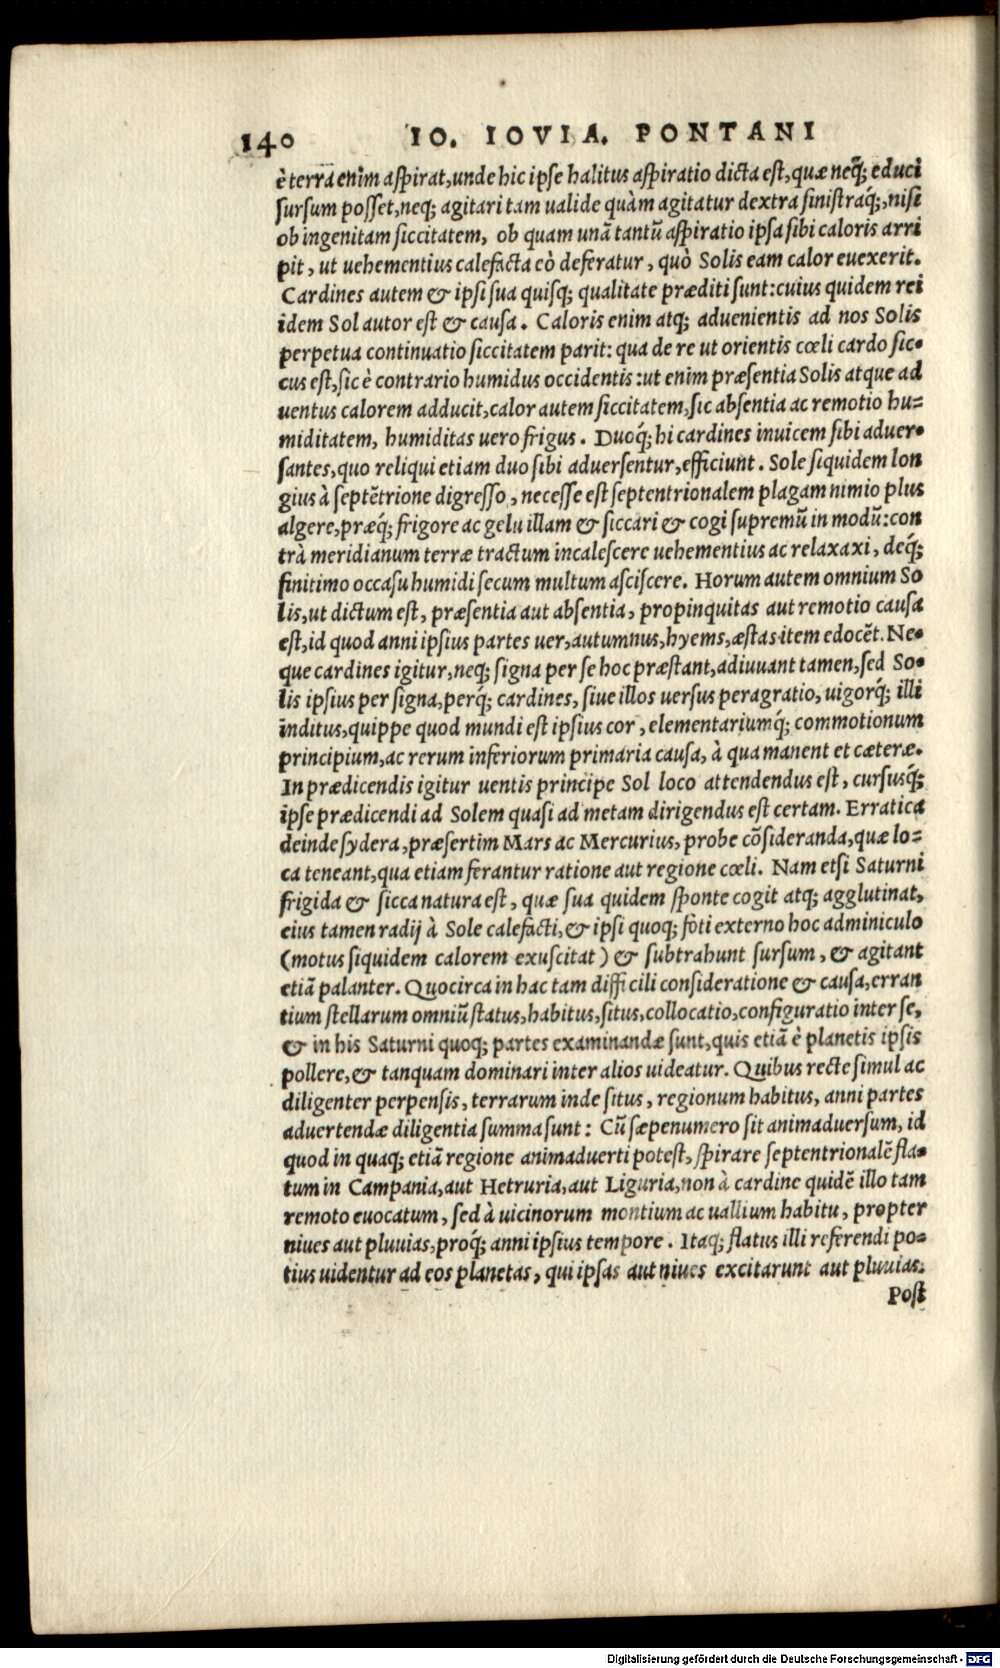 140 IO. IOVIA. PONTANI
è terra enim aspirat, unde hic ipse halitus aspiratio dicta est, quæ neq́; educi
sursum posset, neq; agitari tam ualide quàm agitatur dextra sinistraq́;, nisi
ob ingenitam siccitatem, ob quam unã tantũ aspiratio ipsa sibi caloris arri
pit, ut uehementius calefacta eò deferatur, quò Solis eam calor euexerit.
Cardines autem & ipsi sua quisq; qualitate præditi sunt: cuius quidem rei
idem Sol autor est & causa. Caloris enim atq; aduenientis ad nos Solis
perpetua continuatio siccitatem parit: qua de re ut orientis cœli cardo sic-
cus est, sic è contrario humidus occidentis: ut enim præsentia Solis atque ad
uentus calorem adducit, calor autem siccitatem, sic absentia ac remotio hu-
miditatem, humiditas uero frigus. Duoq́; hi cardines inuicem sibi aduer-
santes, quo reliqui etiam duo sibi aduersentur, efficiunt. Sole siquidem lon
gius à septẽtrione digresso, necesse est septentrionalem plagam nimio plus
algere, præq́; frigore ac gelu illam & siccari & cogi supremũ in modũ: con
trà meridianum terræ tractum incalescere uehementius ac relaxaxi, deq́;
finitimo occasu humidi secum multum asciscere. Horum autem omnium So
lis, ut dictum est, præsentia aut absentia, propinquitas aut remotio causa
est, id quod anni ipsius partes uer, autumnus, hyems, æstas item edocẽt. Ne-
que cardines igitur, neq; signa per se hoc præstant, adiuuant tamen, sed So-
lis ipsius per signa, perq́; cardines, siue illos uersus peragratio, uigorq́; illi
inditus, quippe quod mundi est ipsius cor, elementariumq́; commotionum
principium, ac rerum inferiorum primaria causa, à qua manent et cæteræ.
In prædicendis igitur uentis principe Sol loco attendendus est, cursusq́;
ipse prædicendi ad Solem quasi ad metam dirigendus est certam. Erratica
deinde sydera, præsertim Mars ac Mercurius, probe cõsideranda, quæ lo-
ca teneant, qua etiam ferantur ratione aut regione cœli. Nam etsi Saturni
frigida & sicca natura est, quæ sua quidem sponte cogit atq; agglutinat,
eius tamen radij à Sole calefacti, & ipsi quoq; foti externo hoc adminiculo
(motus siquidem calorem exuscitat) & subtrahunt sursum, & agitant
etiã palanter. Quocirca in hac tam difficili consideratione & causa, erran
tium stellarum omniũ status, habitus, situs, collocatio, configuratio inter se,
& in his Saturni quoq; partes examinandæ sunt, quis etiã è planetis ipsis
pollere, & tanquam dominari inter alios uideatur. Quibus recte simul ac
diligenter perpensis, terrarum inde situs, regionum habitus, anni partes
aduertendæ diligentia summa sunt: Cũ sæpenumero sit animaduersum, id
quod in quaq; etiã regione animaduerti potest, spirare septentrionalẽ fla-
tum in Campania, aut Hetruria, aut Liguria, non à cardine quidẽ illo tam
remoto euocatum, sed à uicinorum montium ac uallium habitu, propter
niues aut pluuias, proq́; anni ipsius tempore. Itaq; flatus illi referendi po-
tius uidentur ad eos planetas, qui ipsas aut niues excitarunt aut pluuias.
Post
Digitalisierung gefördert durch die Deutsche Forschungsgemeinschaft - DFG